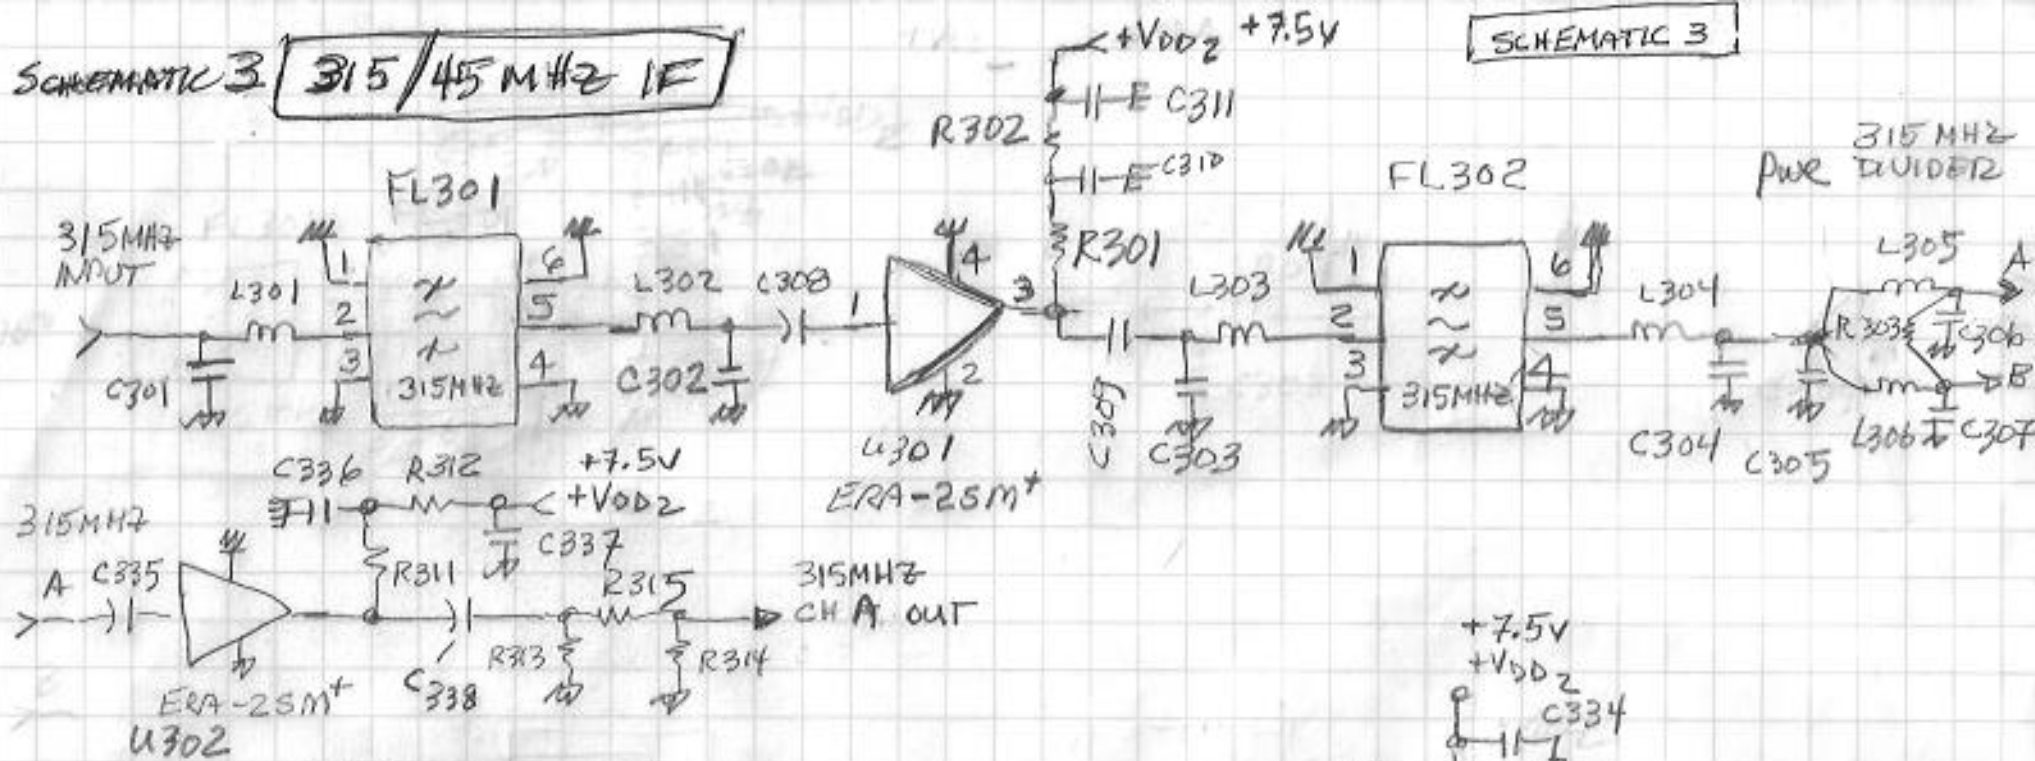 SCHEMATIC 3 315/45 MHZ IF
+VDD2 +7.5V
SCHEMATIC 3
C311
R302
C310
315 MHZ
PWR DIVIDER
FL301
FL302
315MHZ
INPUT
L301
1
2
3
6
5
4
315MHZ
C301
L302
C302
C308
1
4
3
2
R301
U301
ERA-2SM+
C309
L303
C303
1
2
3
6
5
4
315MHZ
L304
C304
C305
L305
A
R303
C306
B
L306
C307
C336
R312
+7.5V
+VDD2
C337
315MHZ
A
C335
R311
R315
315MHZ
CH A OUT
R313
R314
C338
ERA-2SM+
U302
+7.5V
+VDD2
C334